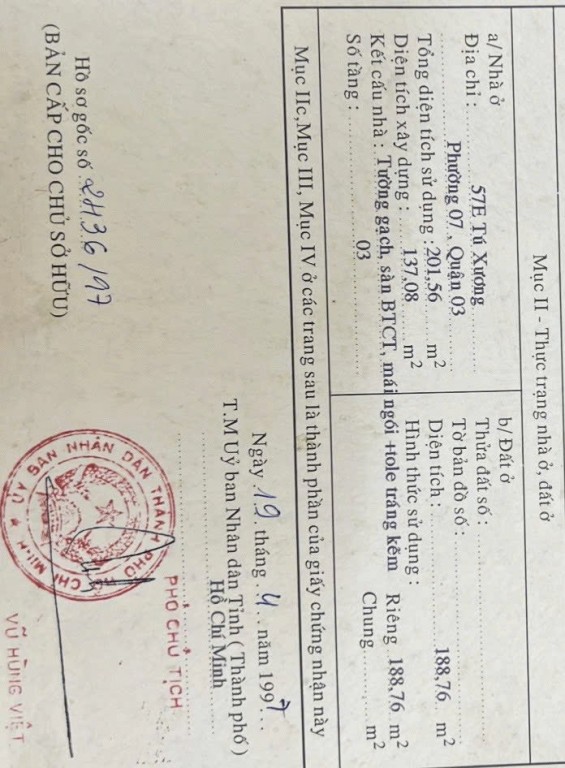 Mục II - Thực trạng nhà ở, đất ở
a/ Nhà ở
Địa chỉ : 57E Tú Xương
Phường 07 , Quận 03
Tổng diện tích sử dụng : 201,56 m2
Diện tích xây dựng : 137,08 m2
Kết cấu nhà : Tường gạch, sàn BTCT, mái ngói +tole tráng kẽm
Số tầng : 03
b/ Đất ở
Thửa đất số :
Tờ bản đồ số :
Diện tích : 188,76 m2
Hình thức sử dụng :
Riêng 188,76 m2
Chung m2
Mục IIc,Mục III, Mục IV ở các trang sau là thành phần của giấy chứng nhận này
Ngày 19 tháng 4 năm 1997
T.M Uỷ ban Nhân dân Tỉnh ( Thành phố )
Hồ Chí Minh
PHÓ CHỦ TỊCH
ỦY BAN NHÂN DÂN THÀNH PHỐ HỒ CHÍ MINH
VŨ HÙNG VIỆT
Hồ sơ gốc số 2436/97
(BẢN CẤP CHO CHỦ SỞ HỮU)